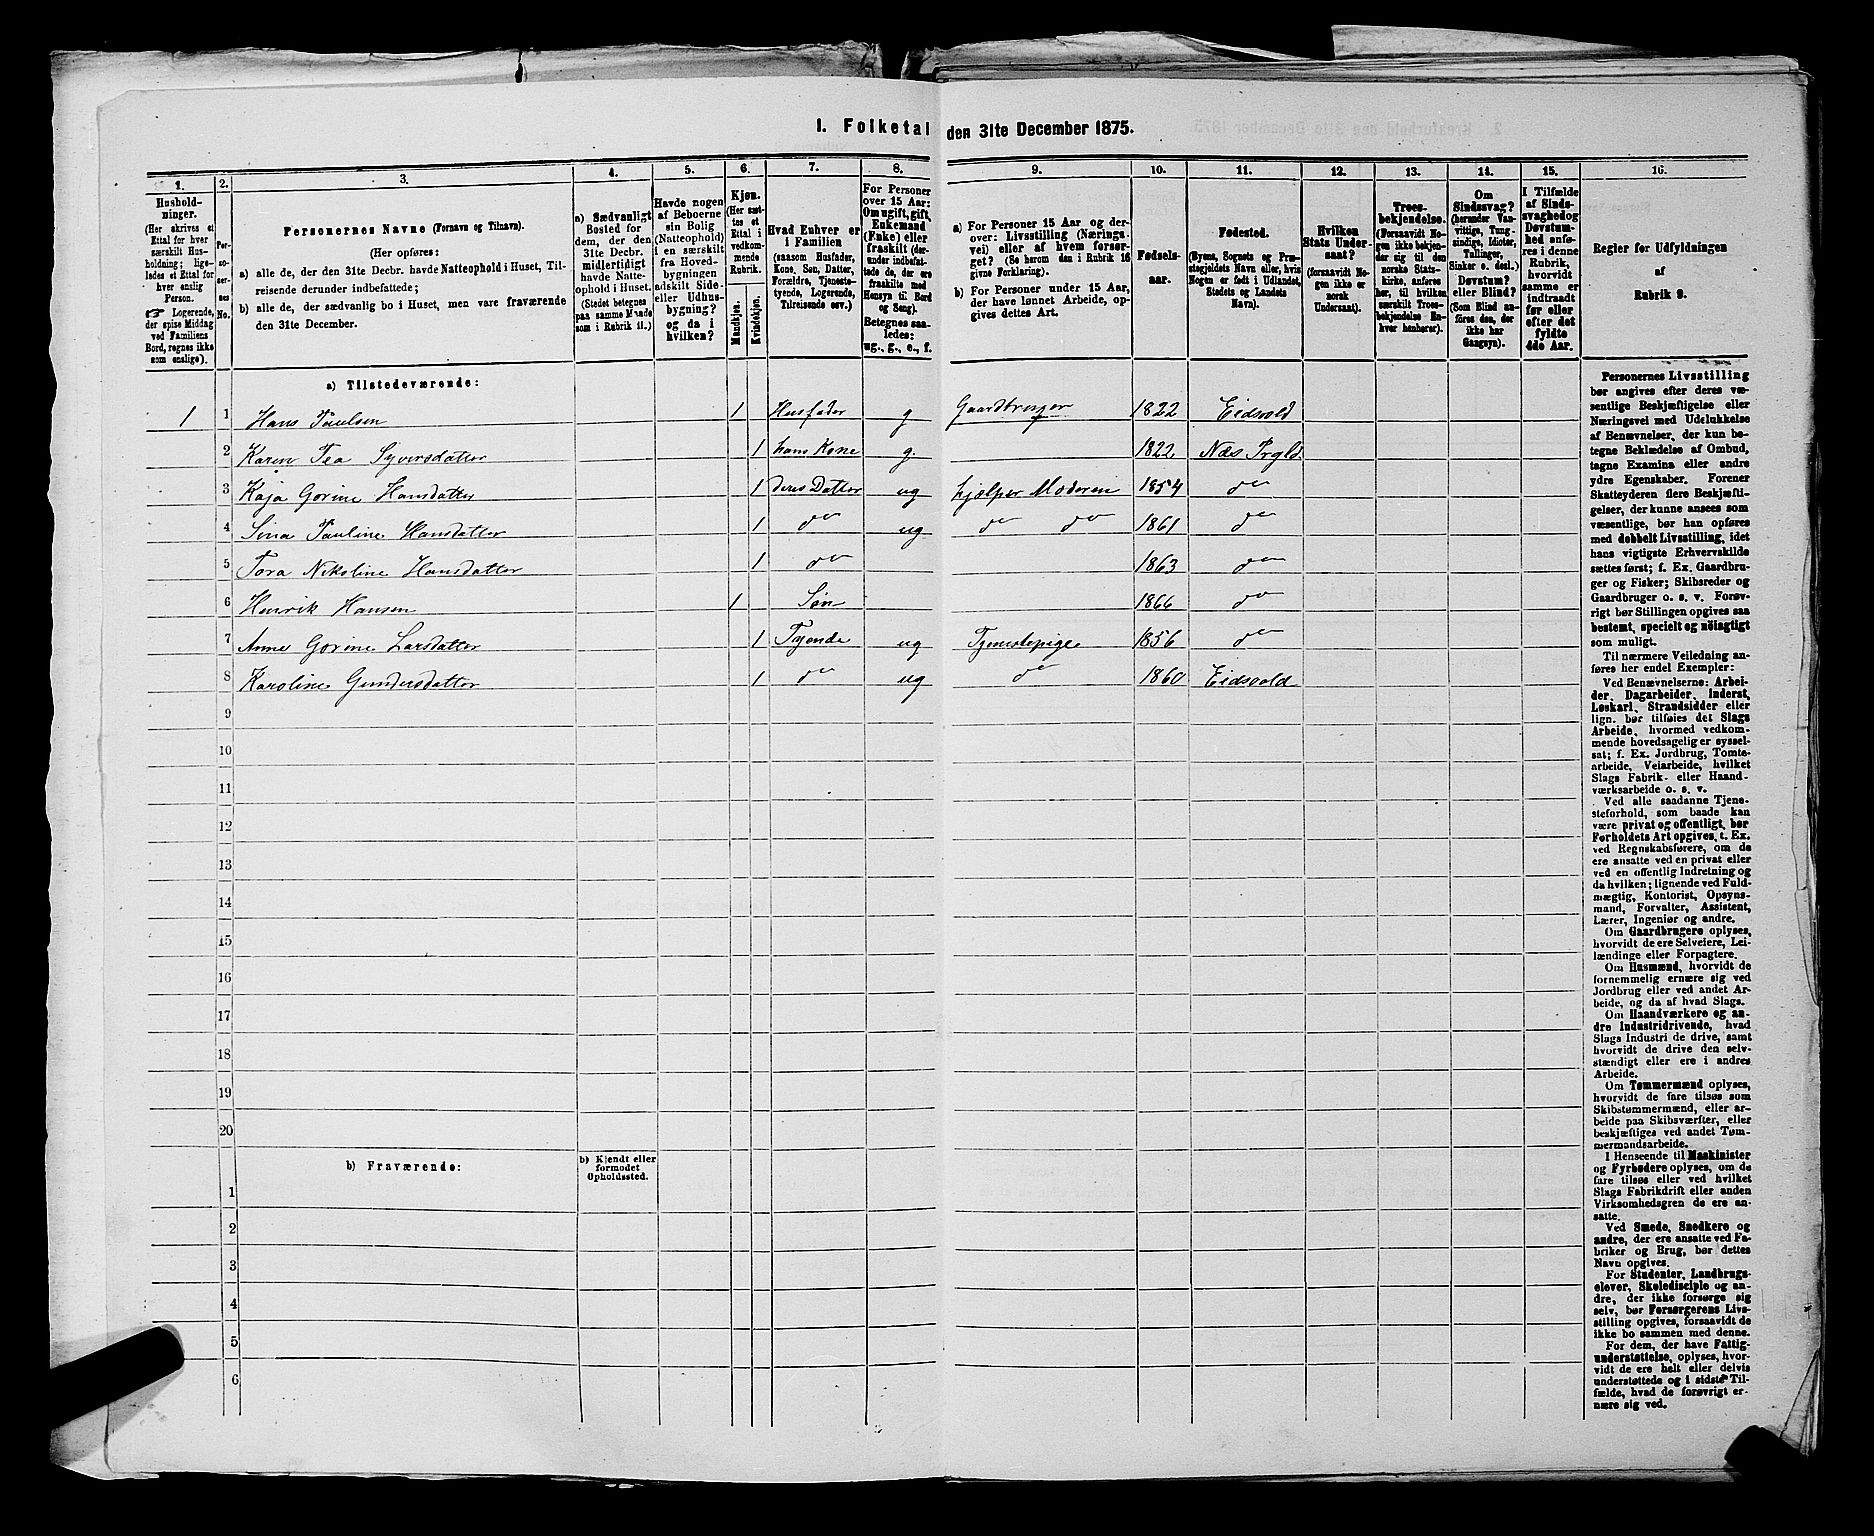 1. Folketal den 31te December 1875.
1. 2. 3. 4. 5. 6. 7. 8. 9. 10. 11. 12. 13. 14. 15. 16.
Husholdninger.
(Her skrives et
Ettal for hver
særskilt Husholdning;
ligeledes et Ettal for
hver enslig
Person.
☞ Logerende,
der spise Middag
ved Familiens
Bord, regnes ikke
som enslige).
Personernes No.
Personernes Navne (Fornavn og Tilnavn).
(Her opføres:
a) alle de, der den 31te Decbr. havde Natteophold i Huset, Tilreisende
derunder indbefattede;
b) alle de, der sædvanlig bo i Huset, men vare fraværende
den 31te December.
a) Sædvanligt
Bosted for
dem, der den
31te Decbr.
midlertidigt
havde Natteophold
i Huset.
(Stedet betegnes
paa samme Maade
som i Rubrik 11.)
Havde nogen
af Beboerne
sin Bolig
(Natteophold)
i en særskilt
fra Hovedbygningen
adskilt Side-
eller Udhusbygning?
og da i
hvilken?
Kjøn.
(Her sættes
et
Ettal i
vedkommende
Rubrik.
Mandkjøn.
Kvindekjøn.
Hvad Enhver er
i Familien
(saasom Husfader,
Kone, Søn, Datter,
Forældre, Tjenestetyende,
Logerende,
Tilreisende osv.)
For Personer
over 15 Aar:
Om ugift, gift,
Enkemand
(Enke) eller
fraskilt (derunder
indbefattede
de, der ere
fraskilte med
Hensyn til Bord
og Seng).
Betegnes saaledes:
ug., g., e., f.
a) For Personer 15 Aar og derover:
Livsstilling (Næringsvei)
eller af hvem forsørget?
(Se herom den i Rubrik 16
givne Forklaring).
b) For Personer under 15 Aar,
der have lønnet Arbeide, opgives
dettes Art.
Fødselsaar.
Fødested.
(Byens, Sognets og Præstegjeldets
Navn eller, hvis
Nogen er født i Udlandet,
Stedets og Landets
Navn).
Hvilken
Stats Undersaat?
(forsaavidt Nogen
ikke er
norsk
Undersaat).
Troesbekjendelse.
(Forsaavidt Nogen
ikke bekjender
sig til den
norske Statskirke,
anføres
her, til hvilken
særskilt Troesbekjendelse
Enhver
henhører).
Om
Sindssvag?
(herunder Vanvittige,
Tungsindige,
Idioter,
Tullinger,
Sinker o. desl.)
Døvstum?
eller Blind?
(Som Blind anføres
den, der
ikke har
Gangsyn).
I Tilfælde
af Sindssvaghed
og
Døvstumhed
anføres
i denne
Rubrik,
hvorvidt
samme er
indtraadt
før eller
efter det
fyldte
4de Aar.
Regler for Udfyldningen
af
Rubrik 9.
a) Tilstedeværende:
1 1 Hans Paulsen 1 Husfader g Gaardbruger 1822 Eidsvold
2 Karen Tea Syversdatter 1 hans Kone g. 1822 Næs Prgld.
3 Kaja Gorine Hansdatter 1 deres Datter ug hjælper Moderen 1854 do
4 Sina Pauline Hansdatter 1 do ug do do 1861 do
5 Tora Nikoline Hansdatter 1 do 1863 do
6 Henrik Hansen 1 Søn 1866 do
7 Anne Gorine Larsdatter 1 Tyende ug Tjenestepige 1856 do
8 Karoline Gundersdatter 1 do ug do 1860 Eidsvold
9
10
11
12
13
14
15
16
17
18
19
20
b) Fraværende:
b) Kjendt eller
formodet
Opholdssted.
1
2
3
4
5
6
Personernes Livsstilling
bør angives efter deres væsentlige
Beskjæftigelse eller
Næringsvei med Udelukkelse
af Benævnelser, der kun betegne
Beklædelse af Ombud,
tagne Examina eller andre
ydre Egenskaber. Forener
Skatteyderen flere Beskjæftigelser,
der kunne ansees som
væsentlige, bør han opføres
med dobbelt Livsstilling, idet
hans vigtigste Erhvervskilde
sættes først; f. Ex. Gaardbruger
og Fisker; Skibsreder og
Gaardbruger o. s. v. Forøvrigt
bør Stillingen opgives saa
bestemt, specielt og nöiagtigt
som muligt.
Til nærmere Veiledning anføres
her endel Exempler:
Ved Benævnelserne: Arbeider,
Dagarbeider, Inderst,
Løskarl, Strandsidder eller
lign. bør tilføies det Slags
Arbeide, hvormed vedkommende
hovedsagelig er sysselsat;
f. Ex. Jordbrug, Tomtearbeide,
Veiarbeide, hvilket
Slags Fabrik- eller Haandværksarbeide
o. s. v.
Ved alle saadanne Tjenesteforhold,
som baade kan
være privat og offentligt, bør
Forholdets Art opgives, t. Ex.
ved Regnskabsførere, om de
ere ansatte ved en privat eller
ved en offentlig Indretning og
da hvilken; lignende ved Fuldmægtig,
Kontorist, Opsynsmand,
Forvalter, Assistent,
Lærer, Ingeniør og andre.
Om Gaardbrugere oplyses,
hvorvidt de ere Selveiere, Leilændinge
eller Forpagtere.
Om Husmænd, hvorvidt de
fornemmelig ernære sig ved
Jordbrug eller ved andet Arbeide,
og da af hvad Slags.
Om Haandværkere og andre
Industridrivende, hvad
Slags Industri de drive, samt
hvorvidt de drive den selvstændigt
eller ere i andres
Arbeide.
Om Tømmermænd oplyses,
hvorvidt de fare tilsøs som
Skibstømmermænd, eller arbeide
paa Skibsværfter, eller
beskjæftiges ved andet Tømmermandsarbeide.
I Henseende til Maskinister
og Fyrbødere oplyses, om de
fare tilsøs eller ved hvilket
Slags Fabrikdrift eller anden
Virksomhedsgren de ere ansatte.
Ved Smede, Snedkere og
andre, der ere ansatte ved Fabriker
og Brug, bør dettes
Navn opgives.
For Studenter, Landbrugselever,
Skoledisciple og andre,
der ikke forsørge sig
selv, bør Forsørgerens Livsstilling
opgives, forsaavidt de
ikke bo sammen med denne.
For dem, der have Fattigunderstøttelse,
oplyses, hvorvidt
de ere helt eller delvis
understøttede og i sidste Tilfælde,
hvad de forøvrigt ernære
sig ved.